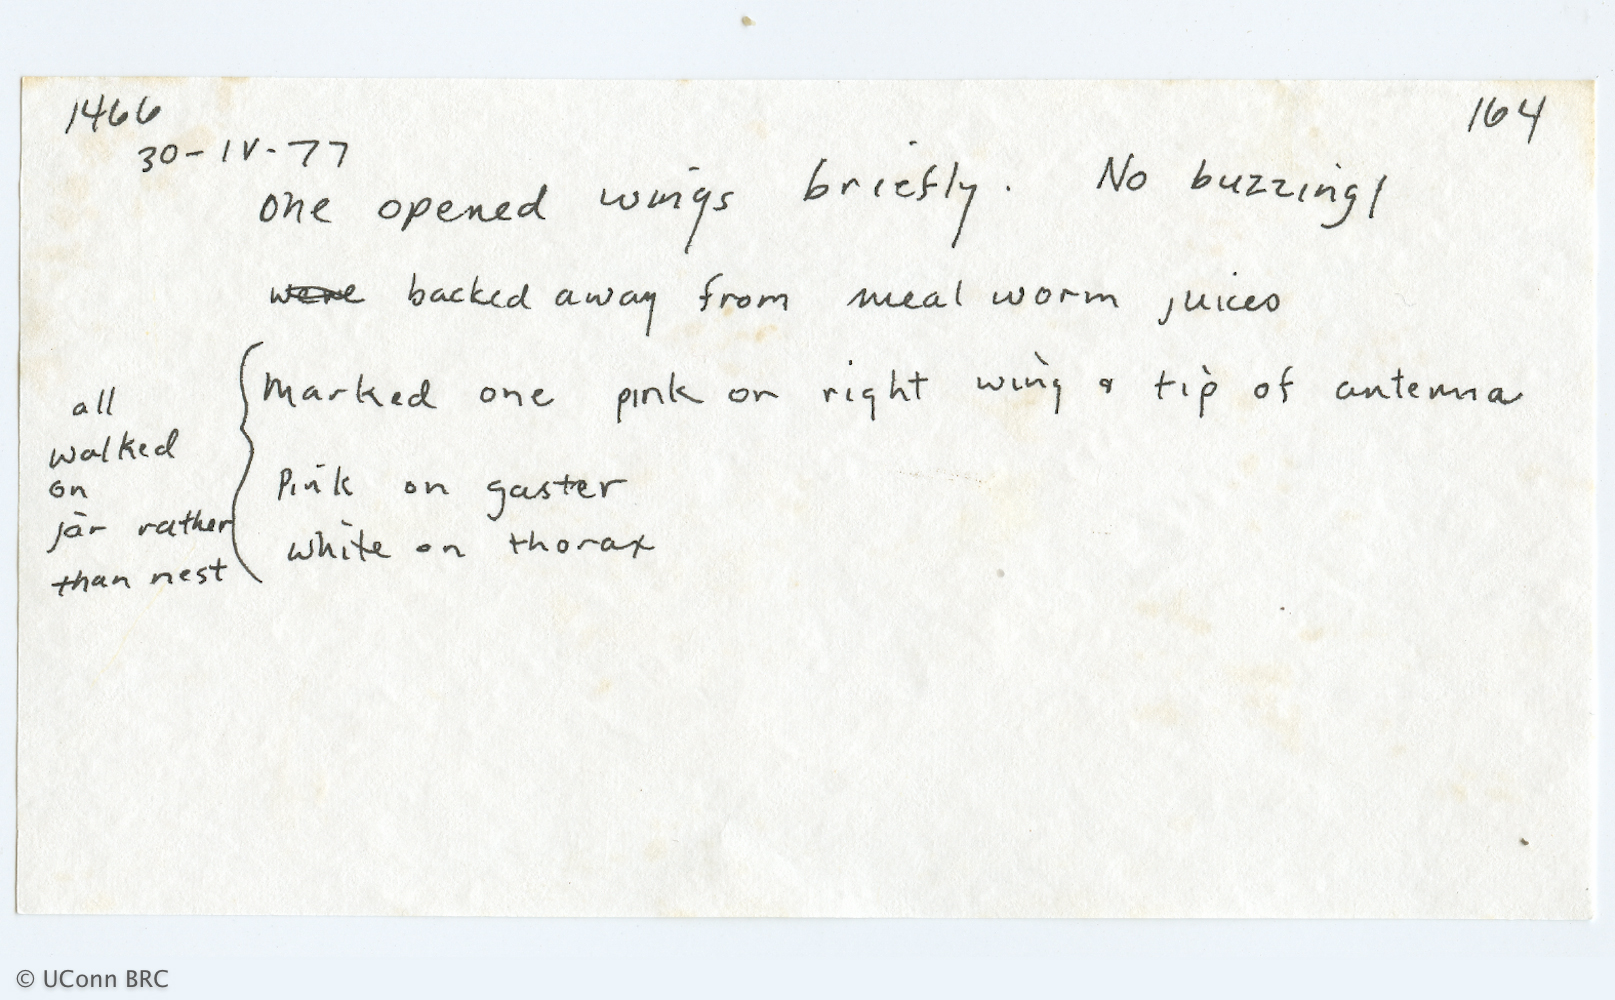 1466
164
30-IV-77
One opened wings briefly. No buzzing!
were backed away from meal worm juices
Marked one pink on right wing & tip of antenna
Pink on gaster
white on thorax
all
walked
on
jar rather
than nest
© UConn BRC